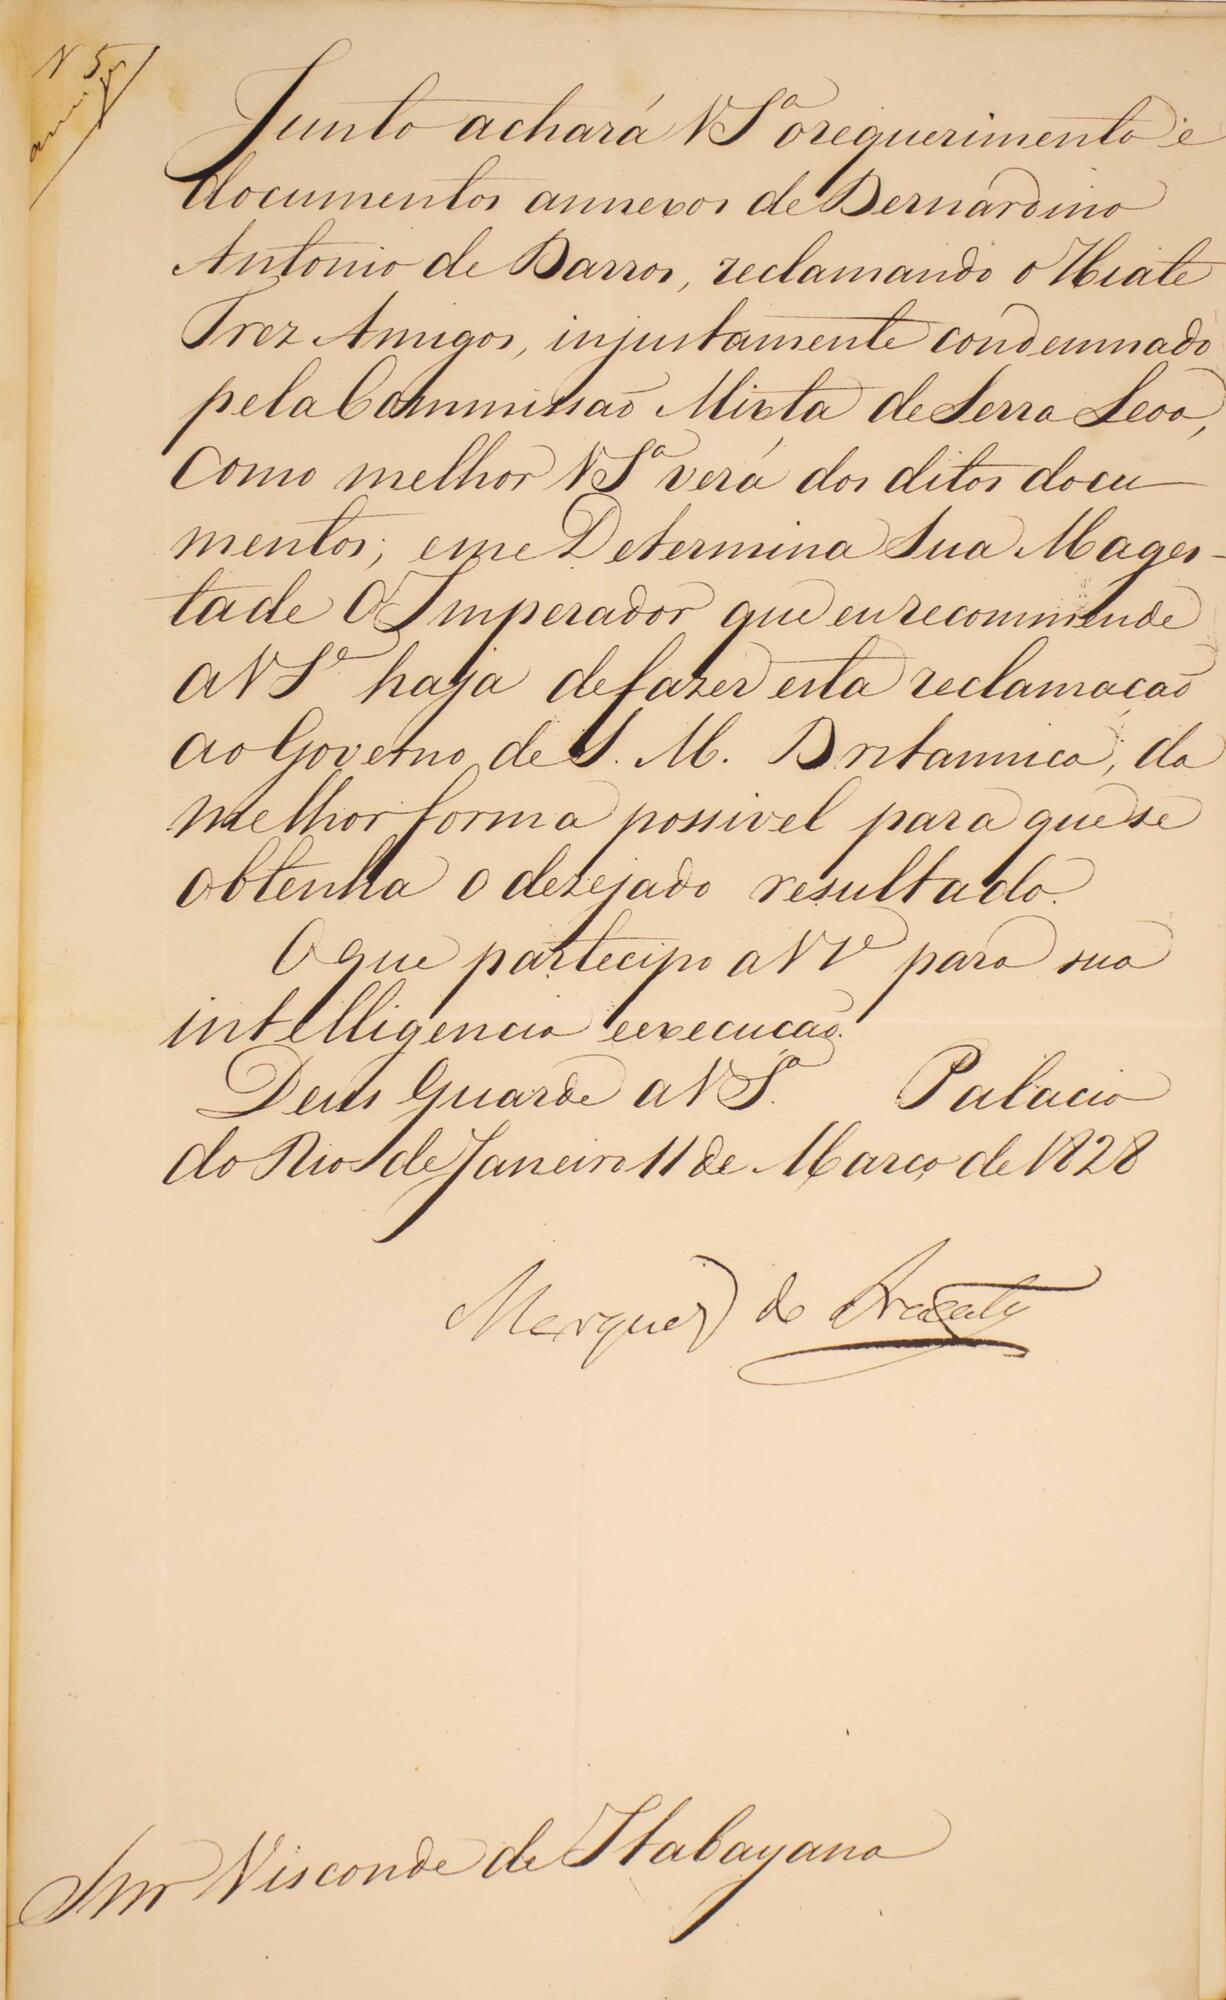 N 5
Junto achará VSª o requerimento e
documentos annexos de Bernardino
Antonio de Barros, reclamando o Hiate
Trez Amigos, injustamente condemnado
pela Commissaõ Mixta de Serra Leoa,
como melhor VSª verá dos ditos docu
mentos; e me Determina Sua Mages-
tade O Imperador que eu recommende
a VSª haja de fazer esta reclamaçaõ
ao Governo de S. M. Britannica, da
melhor forma possivel para que se
obtenha o dezejado resultado.
O que partecipo a VSª para sua
intelligencia e execuçaõ.
Deus Guarde a VSª. Palacio
do Rio de Janeiro 11 de Março de 1828
Marquez de Aracaty
Snr Visconde de Itabayana